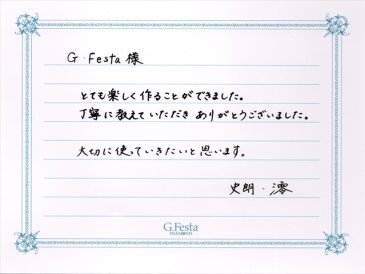 G.Festa 様
とても楽しく作ることができました。
丁寧に教えていただき ありがとうございました。
大切に使っていきたいと思います。
史朗・澪
G.Festa
DIAMOND